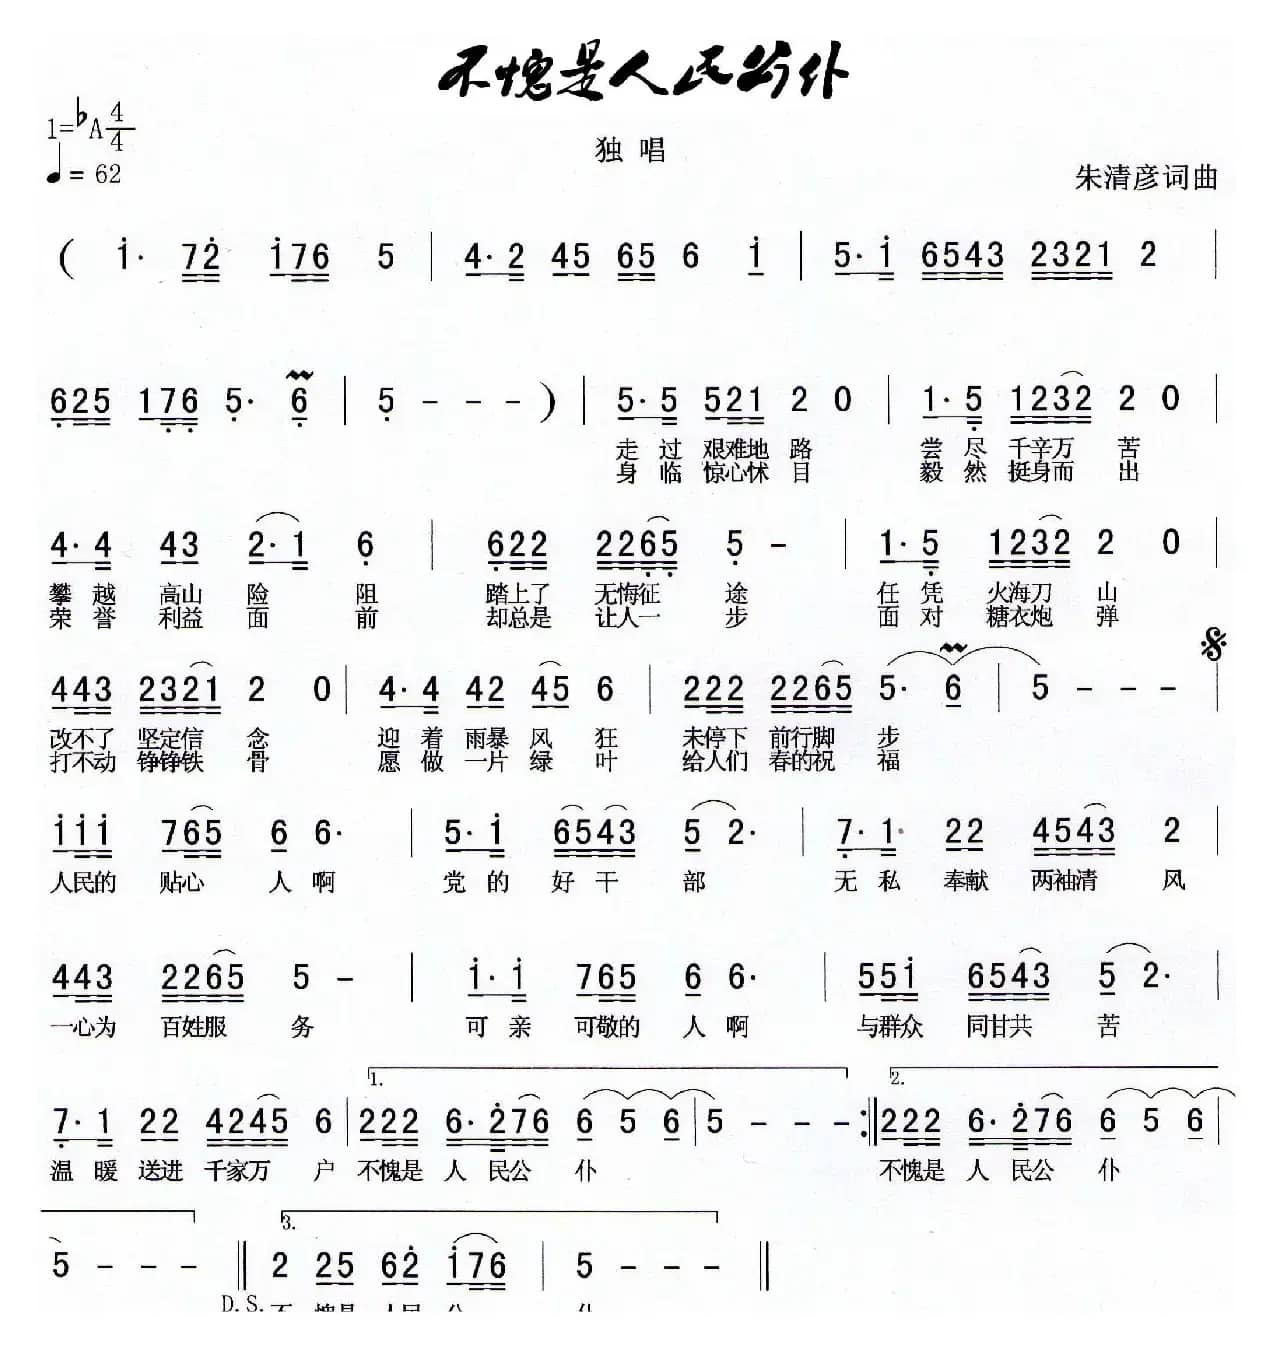 不愧是人民公仆
1=♭A 4/4
♩= 62
独 唱
朱清彦词曲
( 1̇· 72̇ 1̇76 5 | 4·2 45 65 6 1̇ | 5·1̇ 6543 2321 2 |
6̣25 17̣6̣ 5̣· 6̣ | 5̣ - - - ) | 5·5 521 2 0 | 1·5̣ 1232 2 0 |
走 过 艰难地 路 尝 尽 千辛万 苦
身 临 惊心怵 目 毅 然 挺身而 出
4·4 43 2·1 6̣ | 6̣22 226̣5̣ 5̣ - | 1·5̣ 1232 2 0 |
攀 越 高山 险 阻 踏上了 无悔征 途 任 凭 火海刀 山
荣 誉 利益 面 前 却总是 让人一 步 面 对 糖衣炮 弹
443 2321 2 0 | 4·4 42 45 6 | 222 2265 5· 6 | 5 - - - |
改不了 坚定信 念 迎 着 雨暴 风 狂 未停下 前行脚 步
打不动 铮铮铁 骨 愿 做 一片 绿 叶 给人们 春的祝 福
1̇1̇1̇ 765 6 6· | 5·1̇ 6543 5 2· | 7̣·1 22 4543 2 |
人民的 贴心 人 啊 党 的 好 干 部 无 私 奉献 两袖清 风
443 2265 5 - | 1̇·1̇ 765 6 6· | 551̇ 6543 5 2· |
一心为 百姓服 务 可 亲 可敬的 人 啊 与群众 同甘共 苦
1. 2.
7̣·1 22 4245 6 | 222 6·2̇76 6 5 6 | 5 - - - :| 222 6·2̇76 6 5 6 |
温 暖 送进 千家万 户 不愧是 人 民公 仆 不愧是 人 民公 仆
3.
5 - - - || 2 25 62̇ 1̇76 | 5 - - - ||
D.S. 不 愧是 人民 公 仆